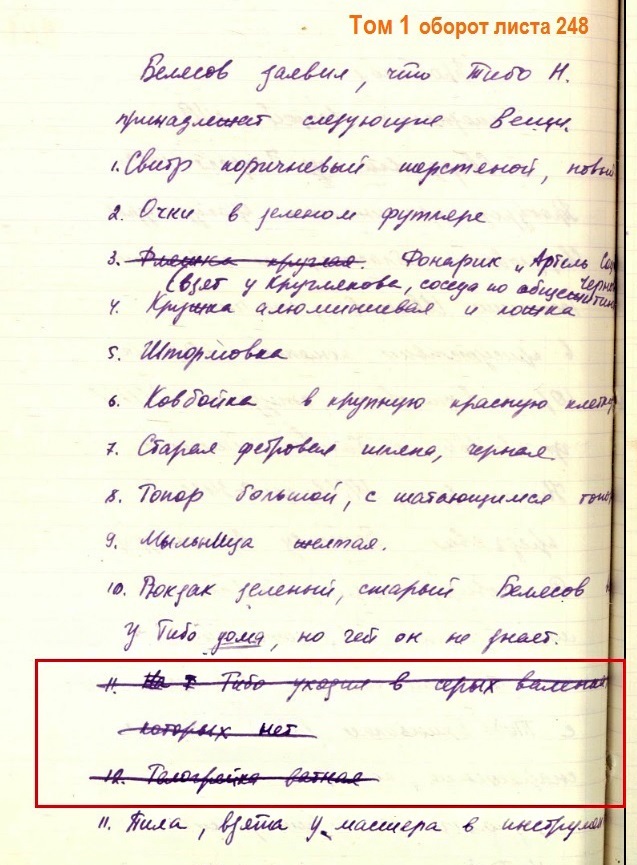 Том 1 оборот листа 248
Белесов заявил, что Тибо Н.
принадлежат следующие вещи.
1. Свитр коричневый шерстеной, новый
2. Очки в зеленом футляре
3. Фляшка круглая. Фонарик „Артель
(взят у Круглякова, соседа по общежитию
4. Кружка алюминиевая и ложка
5. Штормовка
6. Ковбойка в крупную красную клетку
7. Старая фетровая шляпа, черная.
8. Топор большой, с шатающимся
9. Мыльница желтая.
10. Рюкзак зеленый, старый Белесов
у Тибо дома, но чей он не знает.
11. На Т Тибо уходил в серых валенках
которых нет
12. Телогрейка ватная
11. Пила, взята у мастера в